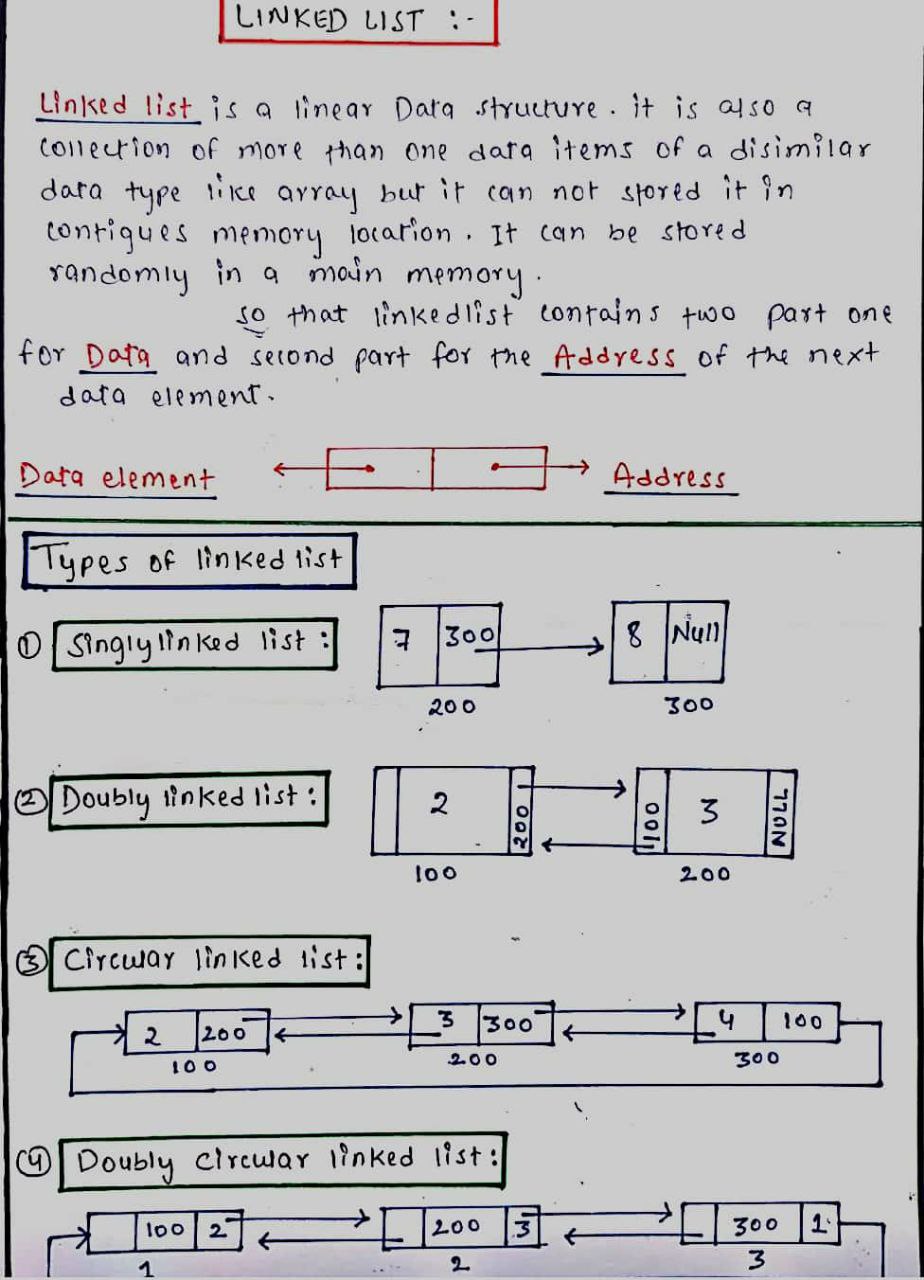 LINKED LIST :-
Linked list is a linear Data structure. it is also a
collection of more than one data items of a disimilar
data type like array but it can not stored it in
contigues memory location. It can be stored
randomly in a main memory.
so that linkedlist contains two part one
for Data and second part for the Address of the next
data element.
Data element Address
Types of linked list
① Singly linked list :
7 300 8 Null
200 300
② Doubly linked list :
2 200 100 3 NULL
100 200
③ Circular linked list :
2 200 3 300 4 100
100 200 300
④ Doubly circular linked list :
100 2 200 3 300 1
1 2 3